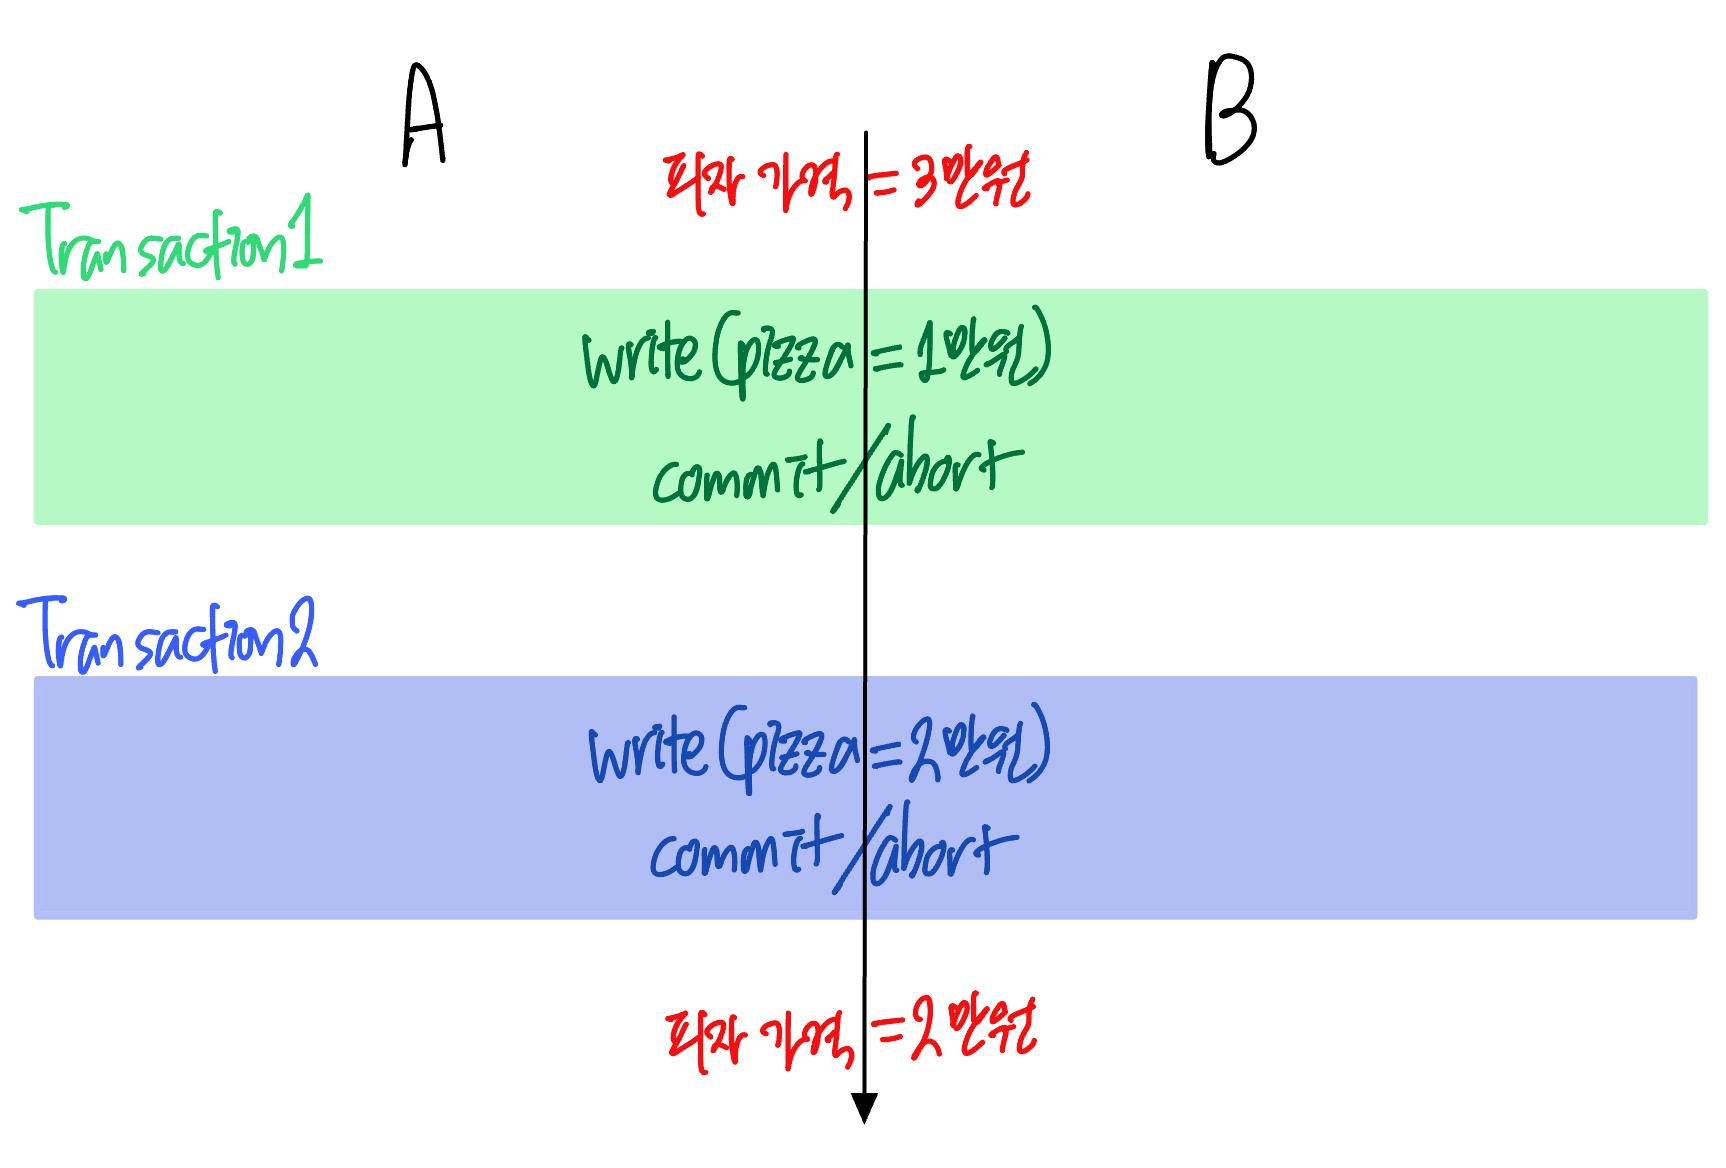 A
B
피자 가격 = 3만원
Transaction1
write(pizza = 1만원)
commit/abort
Transaction2
write(pizza = 2만원)
commit/abort
피자 가격 = 2만원